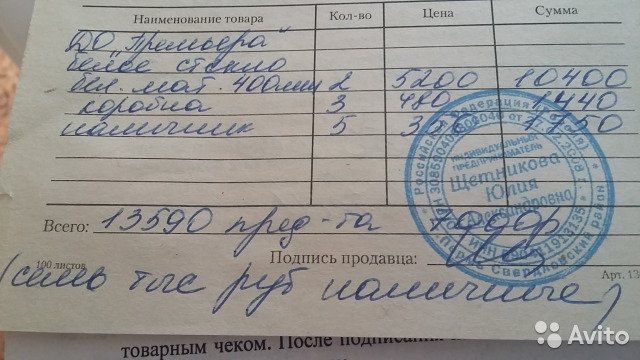 Наименование товара Кол-во Цена Сумма
ДО "Премьера"
белое стекло
бел. мат. 400мм 2 5200 10400
коробка 3 480 1440
наличник 5 1750
Всего: 13590 пред-та
Подпись продавца:
100 листов Арт. 13
(семь тыс руб наличные)
ИНДИВИДУАЛЬНЫЙ
ПРЕДПРИНИМАТЕЛЬ
Щетникова
Юлия
Александровна
Российская Федерация
Свердловский район
товарным чеком. После подписания
Avito